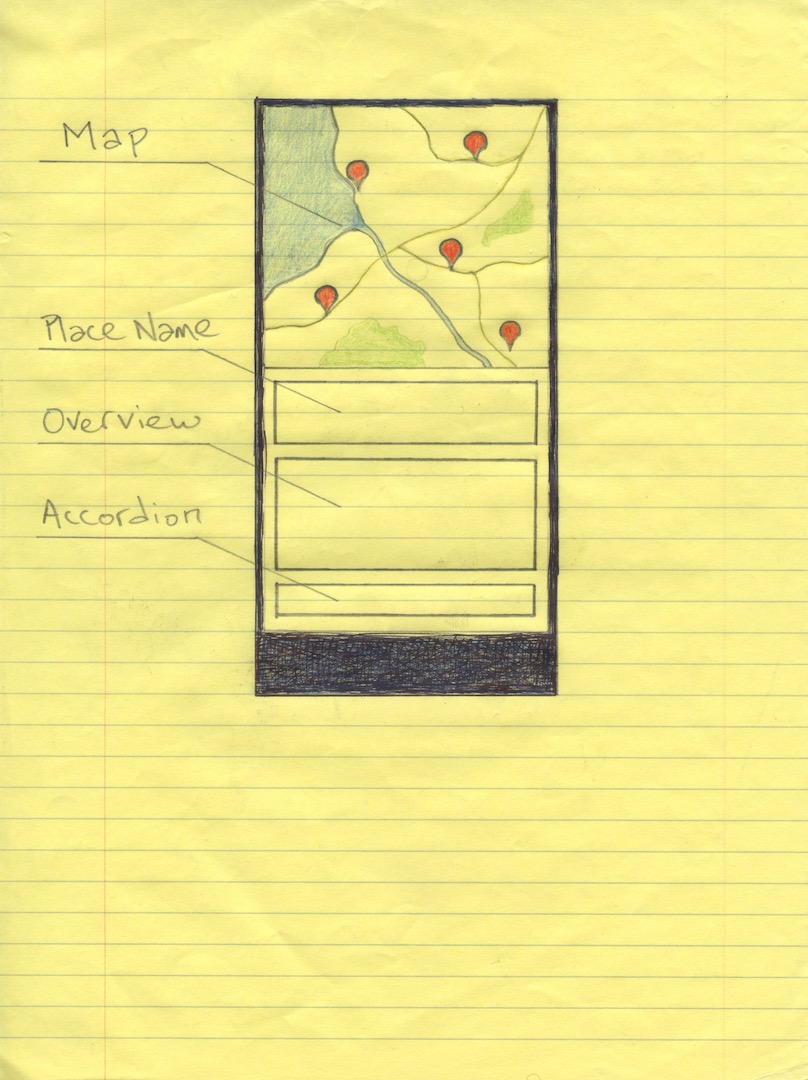 Map
Place Name
Overview
Accordion